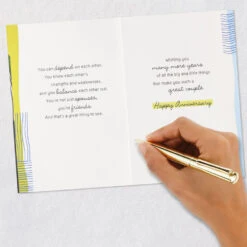 You can depend on each other.
You know each other's
strengths and weaknesses...
and you balance each other out.
You're not just spouses,
you're friends.
And that's a great thing to see.
Wishing you
many more years
of all the big and little things
that make you such a
great couple.
Happy Anniversary